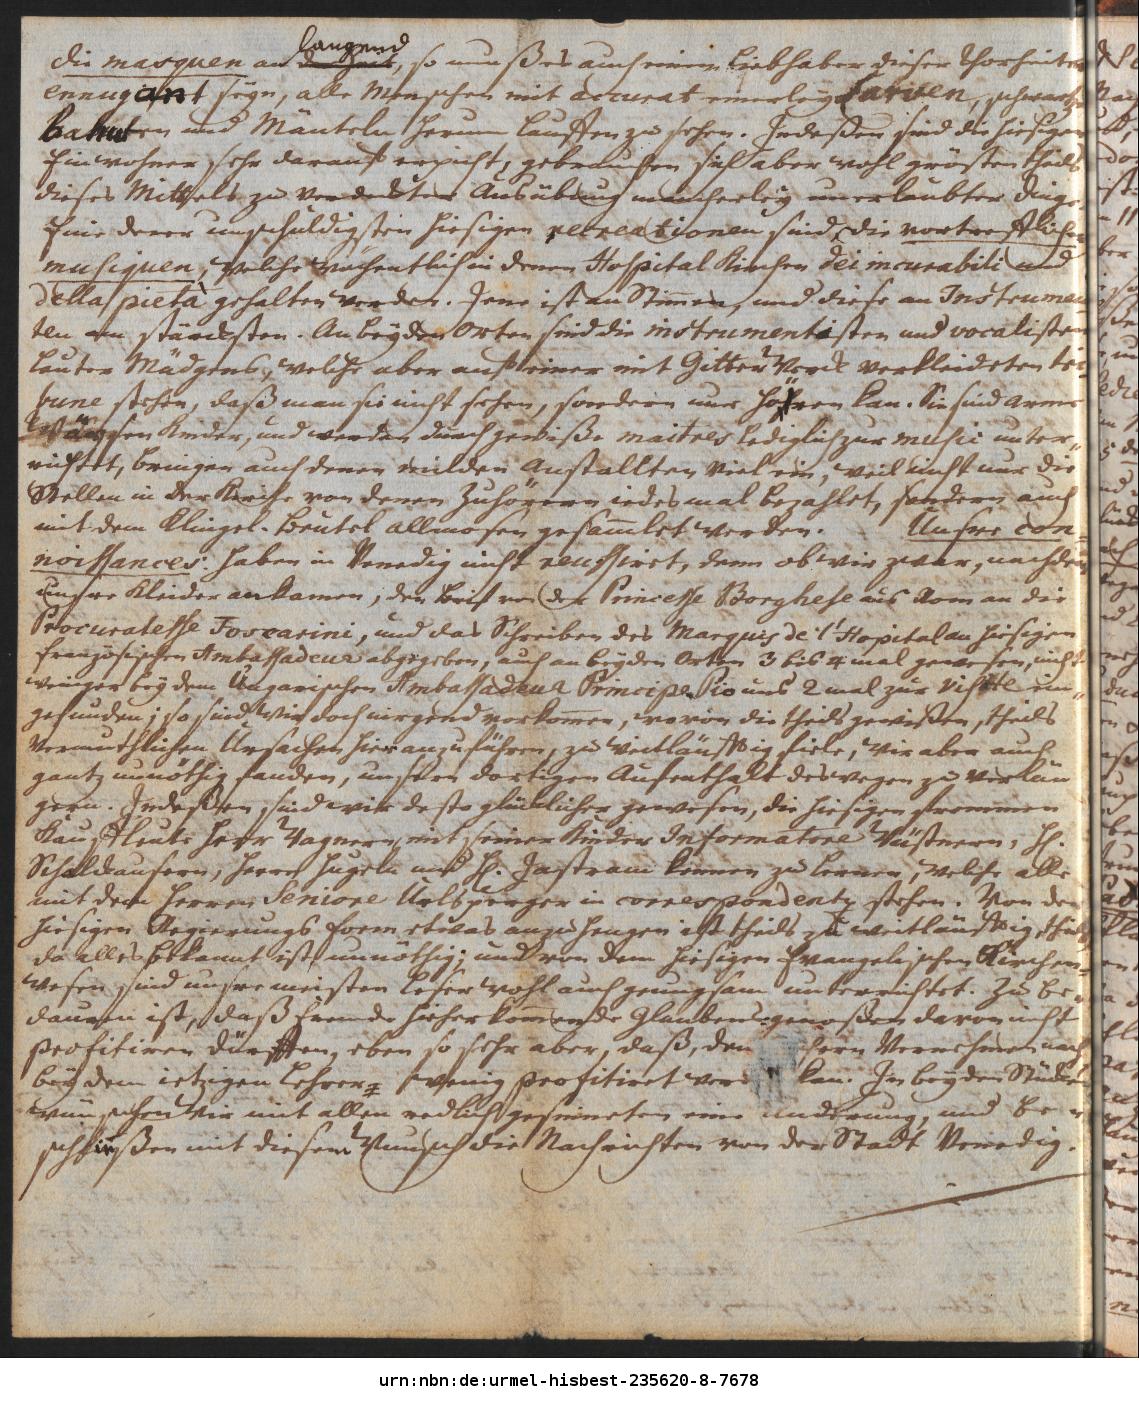 langend
die masquen an, so muß es auch einem Liebhaber dieser Thorheiten
ennuyant seyn, alle Menschen mit accurat einerley Larven, schwartzen
Bahuten und Mänteln herum lauffen zu sehen. Indeßen sind die hiesigen
Einwohner sehr darauf erpicht, gebrauchen sich aber wohl grösten theils
dieses Mittels zu verdeckter Ausübung mancherley unerlaubter Dinge.
Eine derer unschuldigsten hiesigen recreationen sind die vortrefflichen
musiquen, welche wöchentlich in denen Hospital Kirchen dei incurabili und
della pietà gehalten werden. Jene ist an Stimmen, und diese an Instrumen
ten am stärcksten. An beyden Orten sind die instrumentisten und vocalisten
lauter Mädgens, welche aber auf einer mit Gitter Werck verkleideten tri-
bune stehen, daß man sie nicht sehen, sondern nur hören kan. Sie sind arme
Wäysen Kinder, und werden durch gewiße maitres lediglich zur music unter-
richtet, bringen auch denen milden Anstallten viel ein, weil nicht nur die
Stellen in der Kirche von denen Zuhörern iedesmal bezahlet, sondern auch
mit dem Klingel-Beutel allmosen gesammlet werden. Unsre con-
noissances haben in Venedig nicht reussiret, denn ob wir zwar, nachdem
unsre Kleider ankamen, den Brief von der Princesse Borghese aus Rom an die
Procuratesse Foscarini, und das Schreiben des Marquis de l'Hopital an hiesigen
französischen Ambassadeur abgegeben, auch an beyden Orten 3 bis 4 mal gewesen, nicht
weniger bey dem Ungarischen Ambassadeur Principe Pio uns 2 mal zur visite ein-
gefunden; so sind wir doch nirgend vorkommen, wovon die theils gewißen, theils
vermuthlichen Ursachen hier anzuführen, zu weitläufftig fiele, wir aber auch
gantz unnöthig fanden, unsren dortigen Aufenthalt deswegen zu verlän
gern. Indeßen sind wir desto glücklicher gewesen, die hiesigen frommen
Kauffleute Herr Wagnern, mit seiner Kinder Informatore Wüstnern, Hh.
Schalkausern, Herrn Hugeln und Hh. Jastram kennen zu lernen, welche alle
mit dem Herrn Seniore Urlsperger in correspondentz stehen. Von der
hiesigen Regierungs form etwas anzuhengen ist theils zu weitläufftig, theils
da alles bekannt ist, unnöthig; und von dem hiesigen Evangelischen Kirchen-
wesen sind unsre meisten Leser wohl auch genugsam unterrichtet. Zu be-
dauren ist, daß fremde hieher kommende Glaubensgenoßen davon nicht
profitiren dürffen, eben so sehr aber, daß, dem Vernehmen nach
bey dem ietzigen Lehrer wenig profitiret werden kan. In beyden Stücken
wünschen wir mit allen redlichgesinneten eine änderung, und be-
schließen mit diesem Wunsch die Nachrichten von der Stadt Venedig.
urn:nbn:de:urmel-hisbest-235620-8-7678